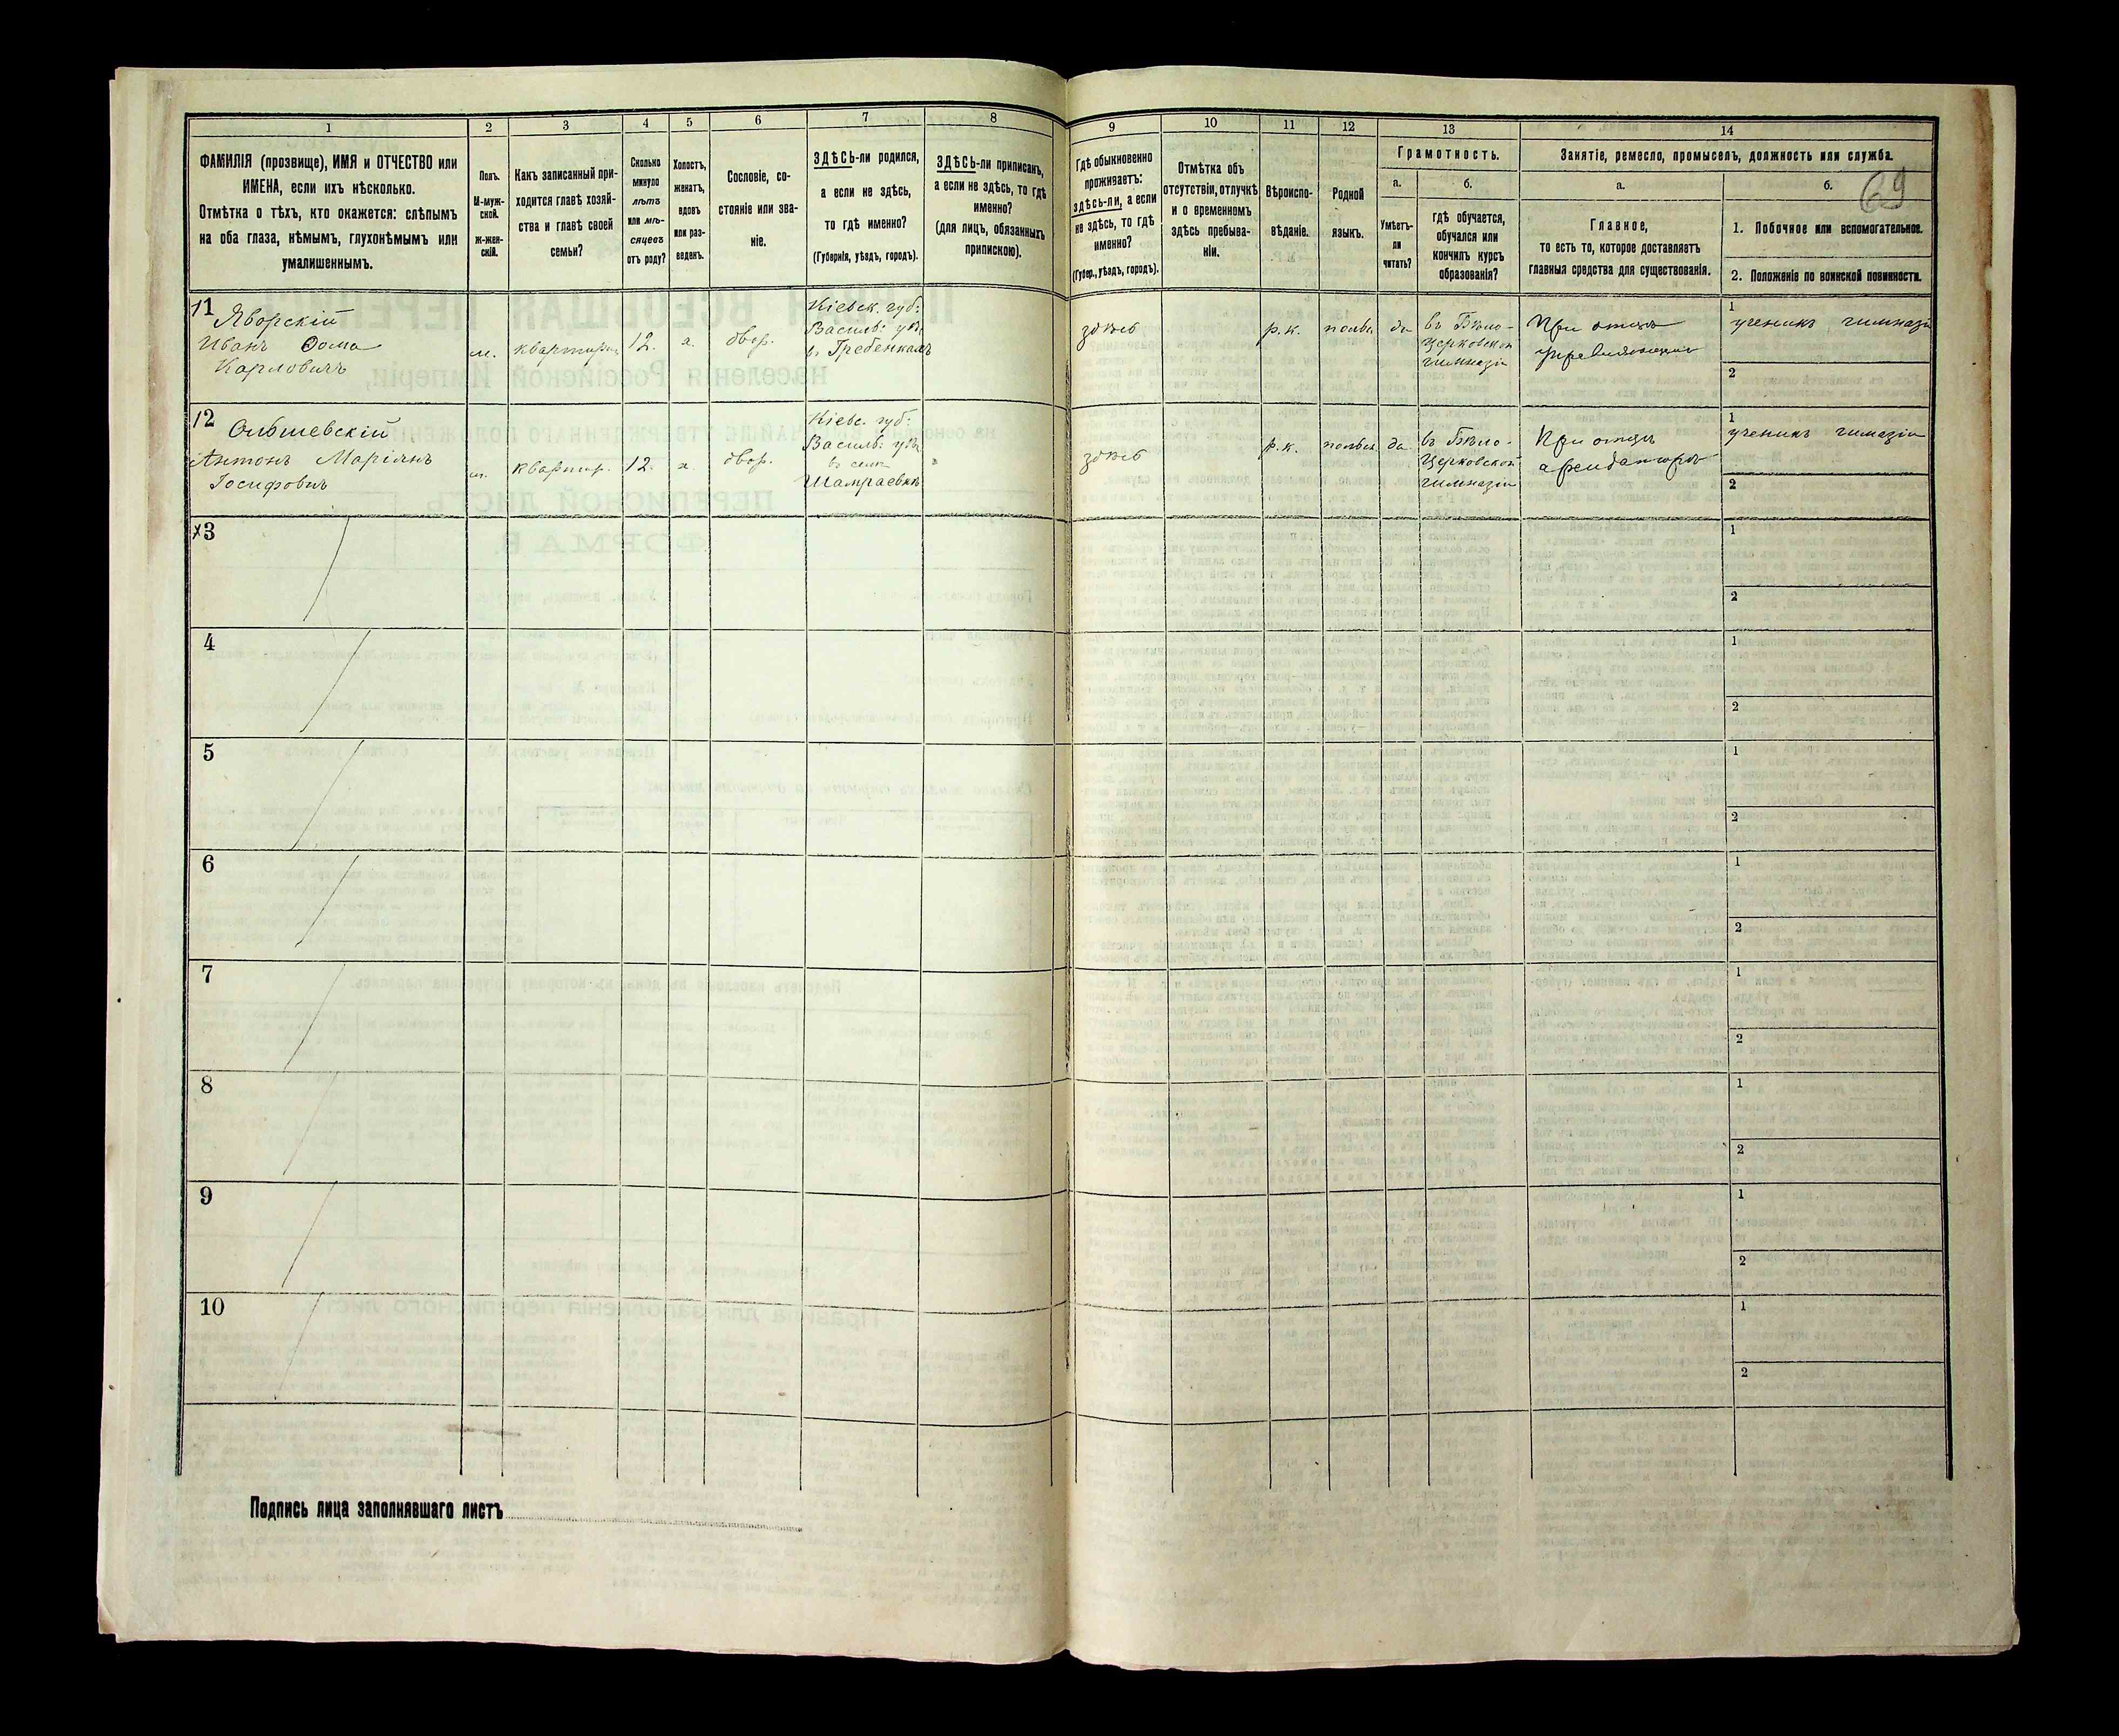 1
2
3
4
5
6
7
8
9
10
11
12
13
14
ФАМИЛІЯ (прозвище), ИМЯ и ОТЧЕСТВО или
ИМЕНА, если ихъ нѣсколько.
Отмѣтка о тѣхъ, кто окажется: слѣпымъ
на оба глаза, нѣмымъ, глухонѣмымъ или
умалишеннымъ.
Полъ.
М-муж-
ской.
Ж-жен-
скій.
Какъ записанный при-
ходится главѣ хозяй-
ства и главѣ своей
семьи?
Сколько
минуло
лѣтъ
или мѣ-
сяцевъ
отъ роду?
Холостъ,
женатъ,
вдовъ
или раз-
веденъ.
Сословіе, со-
стояніе или зва-
ніе.
ЗДѢСЬ-ли родился,
а если не здѣсь,
то гдѣ именно?
(Губернія, уѣздъ, городъ).
ЗДѢСЬ-ли приписанъ,
а если не здѣсь, то гдѣ
именно?
(для лицъ, обязанныхъ
припискою).
Гдѣ обыкновенно
проживаетъ:
здѣсь-ли, а если
не здѣсь, то гдѣ
именно?
(Губер., уѣздъ, городъ).
Отмѣтка объ
отсутствіи, отлучкѣ
и о временномъ
здѣсь пребыва-
ніи.
Вѣроиспо-
вѣданіе.
Родной
языкъ.
Грамотность.
а.
Умѣетъ-
ли
читать?
б.
гдѣ обучается,
обучался или
кончилъ курсъ
образованія?
Занятіе, ремесло, промыселъ, должность или служба.
а.
Главное,
то есть то, которое доставляетъ
главныя средства для существованія.
б.
69
1. Побочное или вспомогательное.
2. Положеніе по воинской повинности.
11
Яворскій
Иванъ Ѳома
Карловичъ
м.
квартир.
12.
х.
двор.
Кіевск. губ.
Василь. уѣз.
в. Гребенкахъ
здѣсь
р.к.
польск
да
въ Бѣло-
Церковской
гимназіи
При отцѣ
управляющемъ
1
ученикъ гимназіи
2
12
Ольшевскій
Антонъ Маріянъ
Іосифовичъ
м.
квартир.
12.
х.
двор.
Кіевс. губ.
Василь. уѣз.
въ селѣ
Шамраевкѣ
здѣсь
р.к.
польск
да
въ Бѣло-
Церковской
гимназіи
При отцѣ
арендаторѣ
1
ученикъ гимназіи
2
3
1
2
4
1
2
5
1
2
6
1
2
7
1
2
8
1
2
9
1
2
10
1
2
Подпись лица заполнявшаго листъ